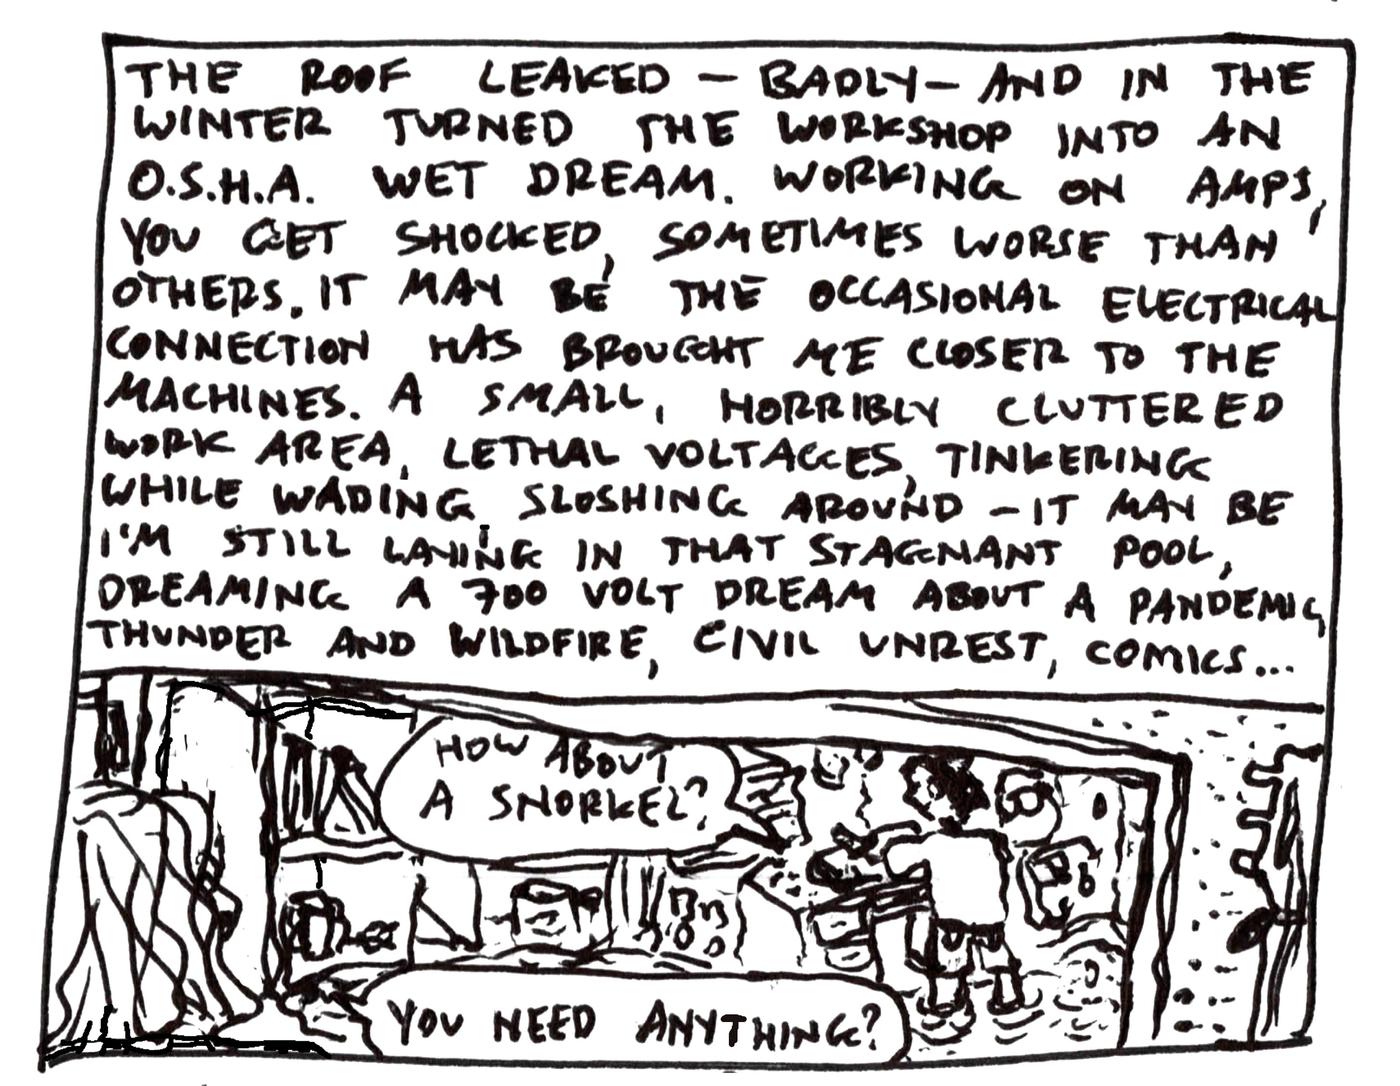 THE ROOF LEAKED — BADLY — AND IN THE
WINTER TURNED THE WORKSHOP INTO AN
O.S.H.A. WET DREAM. WORKING ON AMPS,
YOU GET SHOCKED, SOMETIMES WORSE THAN
OTHERS. IT MAY BE THE OCCASIONAL ELECTRICAL
CONNECTION HAS BROUGHT ME CLOSER TO THE
MACHINES. A SMALL, HORRIBLY CLUTTERED
WORK AREA, LETHAL VOLTAGES, TINKERING
WHILE WADING, SLOSHING AROUND — IT MAY BE
I'M STILL LAYING IN THAT STAGNANT POOL,
DREAMING A 700 VOLT DREAM ABOUT A PANDEMIC,
THUNDER AND WILDFIRE, CIVIL UNREST, COMICS...
HOW ABOUT
A SNORKEL?
YOU NEED ANYTHING?